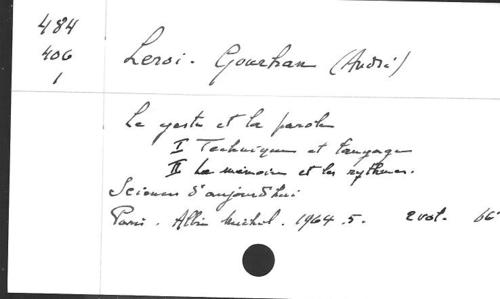 484
406
1
Leroi-Gourhan (André)
Le geste et la parole
I Technique et langage
II La mémoire et les rythmes.
Sciences d'aujourd'hui
Paris. Albin Michel. 1964.5. 2 vol. 66